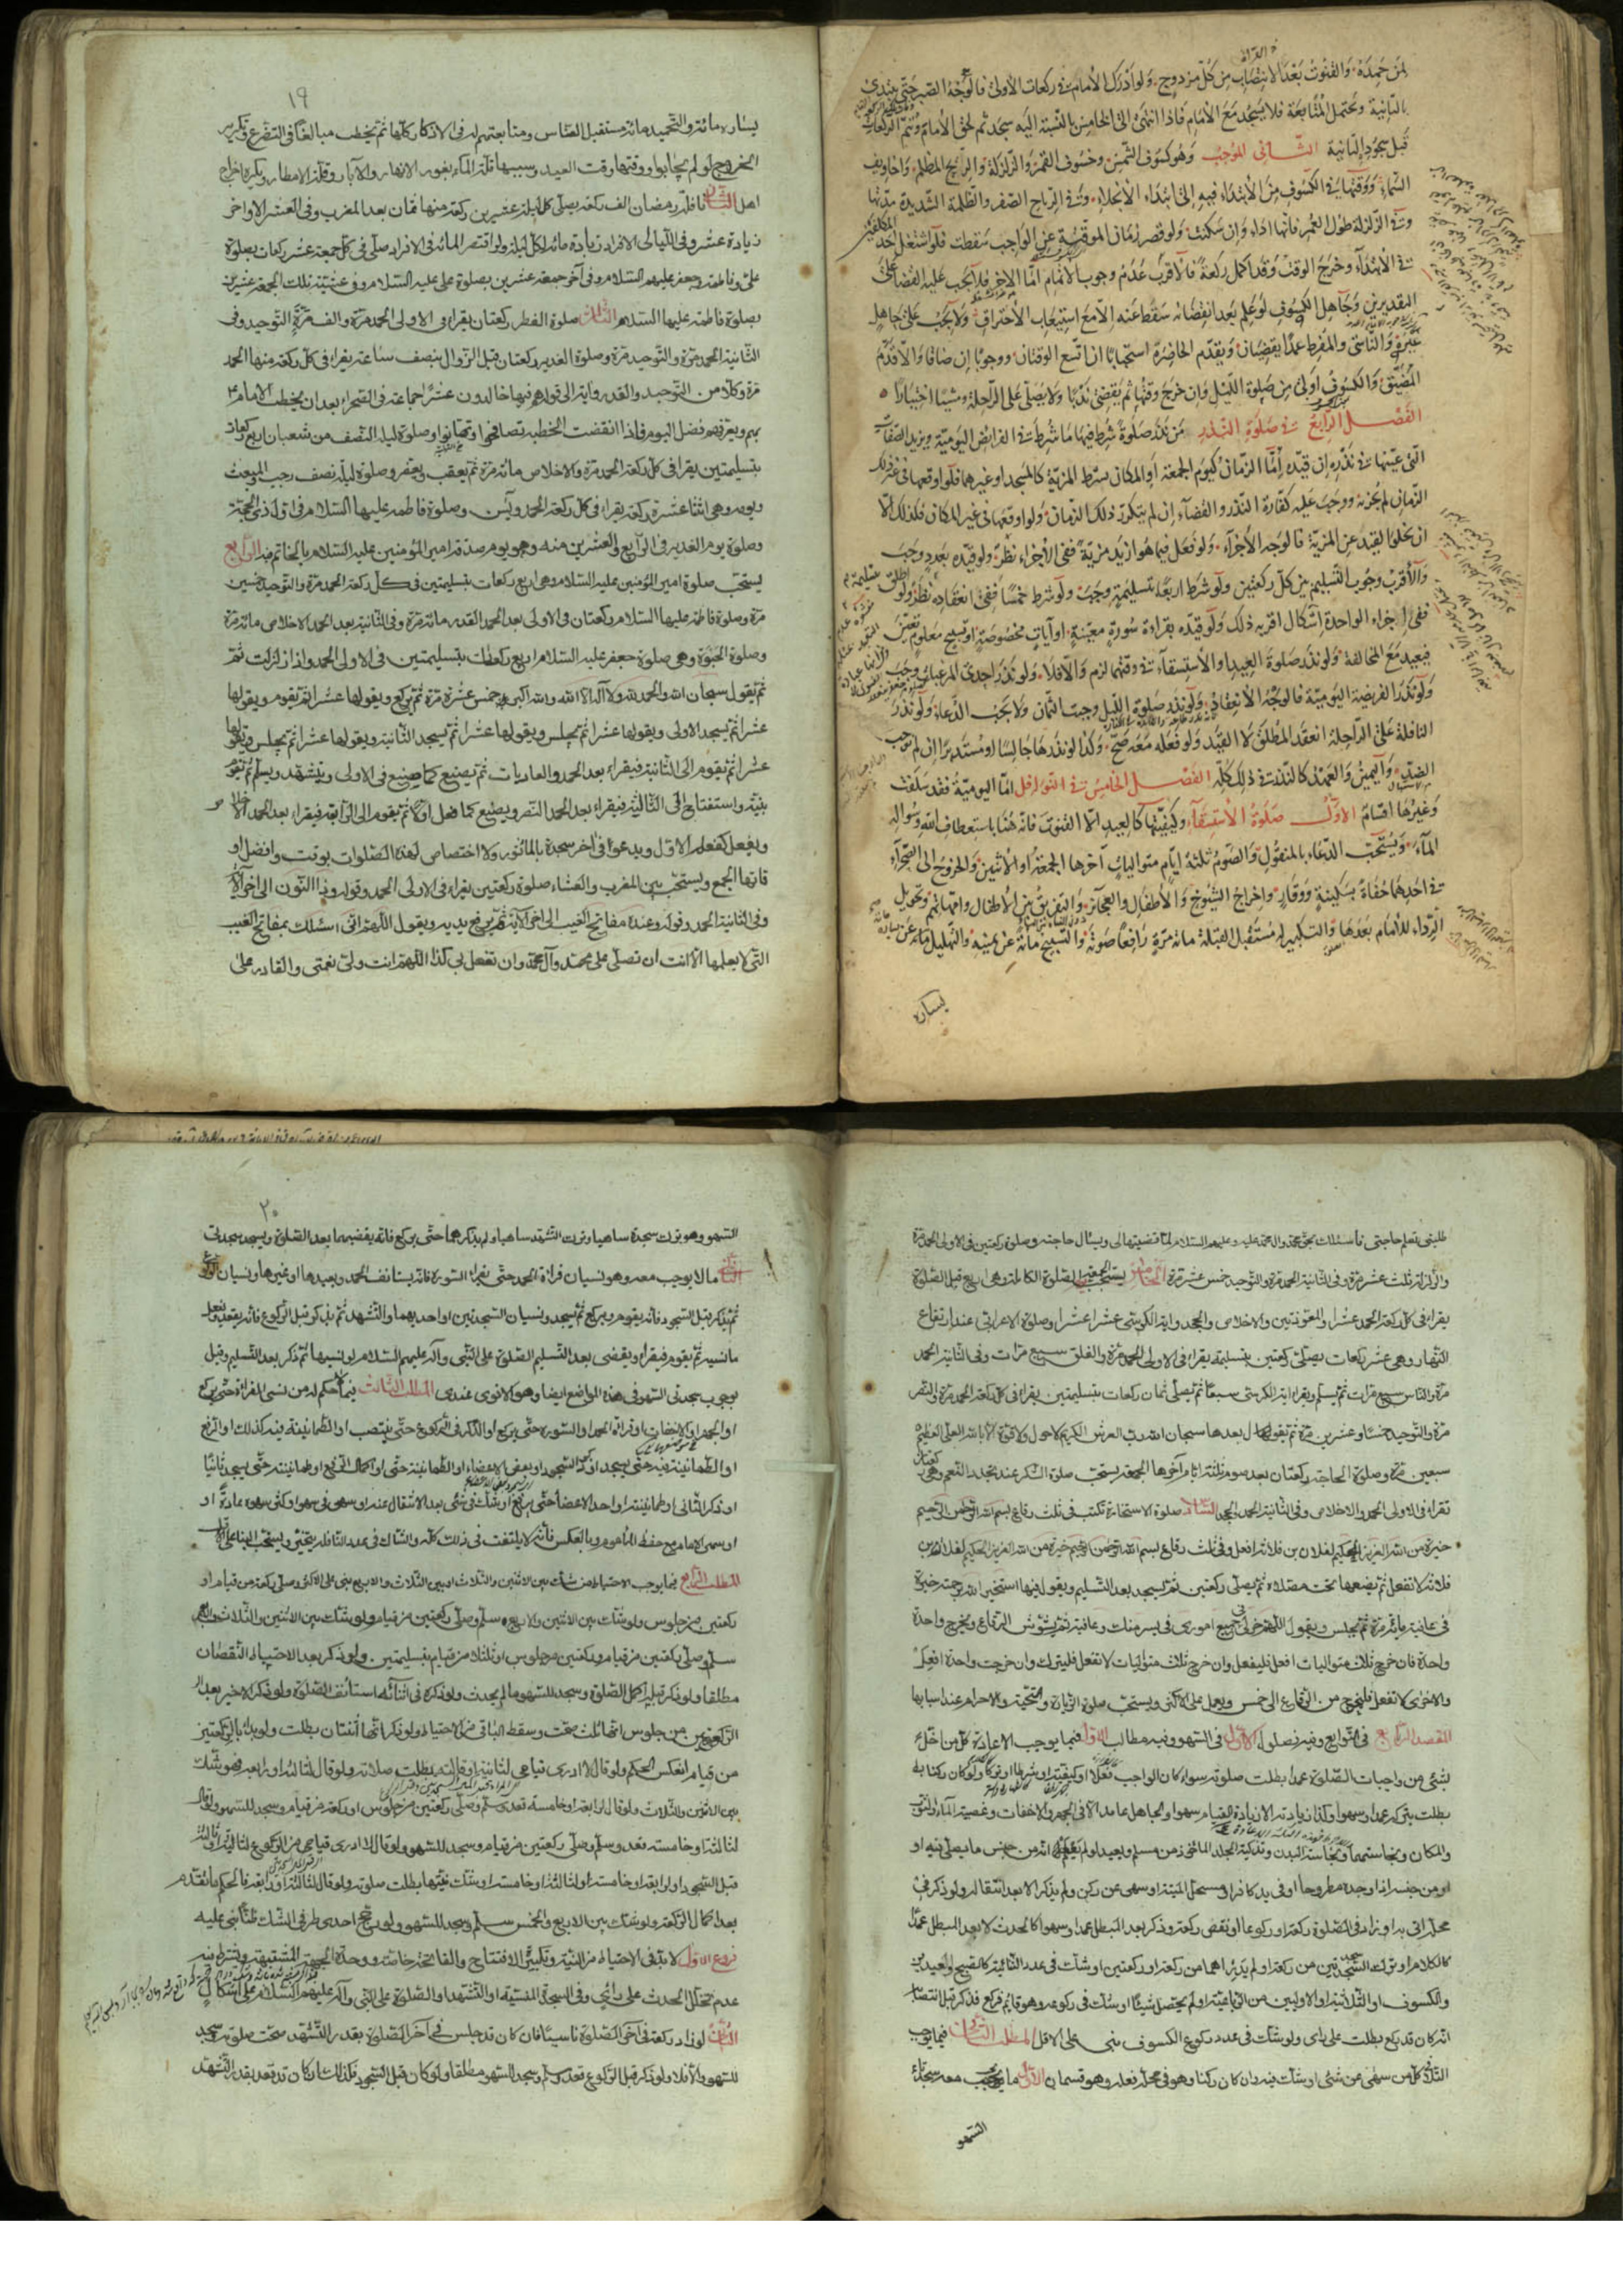 لمن حمده والقنوت بعد الانتصاب من كل مزدوج ولو ادرك الامام في ركعات الاولى فالوجه الصبر حتى يبتدئ
بالثانية ويحتمل المتابعة فلا يسجد مع الامام فاذا انتهى الى الخامس بالنسبة اليه سجد ثم لحق الامام ويتم الركعات
قبل سجود الثانية الثاني الموجب وهو كسوف الشمس وخسوف القمر والزلزلة والريح المظلم واخاويف
السماء ووقتها في الكسوف من الابتداء فيه الى ابتداء الانجلاء وفي الرياح الصفر والظلمة الشديدة مدتها
وفي الزلزلة طول العمر فانها اداء وان سكنت ولو قصر زمان الموقتة عن الواجب سقطت فلو اشتغل احد المكلفين
في الابتداء وخرج الوقت وقد اكمل ركعة فالاقرب عدم وجوب الاتمام اما الاخر فلا يجب عليه القضاء على
التقديرين وجاهل الكسوف لو علم بعد انقضائه سقط عنه الا مع استيعاب الاحتراق ولا يجب على جاهل
غيره والناسي والمفرط عمدا يقضيان ويقدم الحاضرة استحبابا ان اتسع الوقتان ووجوبا ان ضاقا والا قدم
المضيق والكسوف اولى من صلوة الليل وان خرج وقتها ثم يقضي ندبا ولا يصلى على الراحلة ومشيا اختيارا
الفصل الرابع في صلوة النذر من نذر صلوة شرط فيها ما شرط في الفرائض اليومية ويزيد الصفات
التي عينها في نذره ان قيده اما الزمان كيوم الجمعة او المكان بشرط المزية كالمسجد او غيرهما فلو اوقعها في غير ذلك
الزمان لم يجزه ووجب عليه كفارة النذر والقضاء ان لم يتكرر ذلك الزمان ولو اوقعها في غير المكان فكذلك الا
ان يخلو القيد عن المزية فالوجه الاجزاء ولو فعل فيما هو ازيد مزية ففي الاجزاء نظر ولو قيده بعدد وجب
والاقرب وجوب التسليم بين كل ركعتين ولو شرط اربعا بتسليمة وجب ولو شرط خمسا ففي انعقاده نظر ولو اطلق
ففي اجزاء الواحدة اشكال اقربه ذلك ولو قيده بقراءة سورة معينة او آيات مخصوصة او تسبيح معلوم تعين
فيعيد مع المخالفة ولو نذر صلوة العيد او الاستسقاء في وقتهما لزم والا فلا ولو نذر احدى المرغبات وجب
ولو نذر الفريضة اليومية فالوجه الانعقاد ولو نذر صلوة الليل وجبت الثمان ولا يجب الدعاء ولو نذر
النافلة على الراحلة انعقد المطلق لا القيد ولو فعله معه صح وكذا لو نذرها جالسا او مستدبرا ان لم نوجب
الضد واليمين والعهد كالنذر في ذلك كله الفصل الخامس في النوافل اما اليومية فقد سلفت
وغيرها اقسام الاول صلوة الاستسقاء وكيفيتها كالعيد الا القنوت فانه هنا باستعطاف الله وسؤاله
الماء ويستحب الدعاء بالمنقول والصوم ثلثة ايام متواليات آخرها الجمعة او الاثنين والخروج الى الصحراء
في احدهما حفاة بسكينة ووقار واخراج الشيوخ والاطفال والعجائز والتفريق بين الاطفال وامهاتهم وتحويل
الرداء للامام بعدها والتكبير له مستقبل القبلة مائة مرة رافعا صوته والتسبيح مائة عن يمينه والتهليل مائة عن يساره
يساره
١٩
يساره مائة والتحميد مائة مستقبل الناس ومتابعتهم له في الاذكار كلها ثم يخطب مبالغا في التضرع وتكرير
الخروج لو لم يجابوا ووقتها وقت العيد وسببها قلة الماء بغور الانهار والآبار وقلة الامطار ويكره اخراج
اهل الذمة الثاني نافلة رمضان الف ركعة يصلي كل ليلة عشرين ركعة منها ثمان بعد المغرب وفي العشر الاواخر
زيادة عشر وفي الليالي الافراد زيادة مائة لكل ليلة ولو اقتصر المائة في الافراد صلى في كل جمعة عشر ركعات بصلوة
علي وفاطمة وجعفر عليهم السلام وفي آخر جمعة عشرين بصلوة علي عليه السلام وفي عشية تلك الجمعة عشرين
بصلوة فاطمة عليها السلام الثالث صلوة الفطر ركعتان يقرأ في الاولى الحمد مرة والف مرة التوحيد وفي
الثانية الحمد مرة والتوحيد مرة وصلوة الغدير ركعتان قبل الزوال بنصف ساعة يقرأ في كل ركعة منها الحمد
مرة وكلا من التوحيد والقدر وآية الى قوله هم فيها خالدون عشرا جماعة في الصحراء بعد ان يخطب الامام
بهم ويعرفهم فضل اليوم فاذا انقضت الخطبة تصافحوا وتهانوا وصلوة ليلة النصف من شعبان اربع ركعات
بتسليمتين يقرأ في كل ركعة الحمد مرة والاخلاص مائة مرة ثم يعقب ويعفر وصلوة ليلة نصف رجب والمبعث
ويومه وهي اثنتا عشرة ركعة يقرأ في كل ركعة الحمد ويس وصلوة فاطمة عليها السلام في اول ذي الحجة
وصلوة يوم الغدير في الرابع والعشرين منه وهو يوم صدقة امير المؤمنين عليه السلام بالخاتم فيه الرابع
يستحب صلوة امير المؤمنين عليه السلام وهي اربع ركعات بتسليمتين في كل ركعة الحمد مرة والتوحيد خمسين
مرة وصلوة فاطمة عليها السلام ركعتان في الاولى بعد الحمد القدر مائة مرة وفي الثانية بعد الحمد الاخلاص مائة مرة
وصلوة الحبوة وهي صلوة جعفر عليه السلام اربع ركعات بتسليمتين في الاولى الحمد واذا زلزلت ثم
ثم يقول سبحان الله والحمد لله ولا اله الا الله والله اكبر خمس عشرة مرة ثم يركع ويقولها عشرا ثم يقوم ويقولها
عشرا ثم يسجد الاولى ويقولها عشرا ثم يجلس ويقولها عشرا ثم يسجد الثانية ويقولها عشرا ثم يجلس ويقولها
عشرا ثم يقوم الى الثانية فيقراء بعد الحمد والعاديات ثم يصنع كما صنع في الاولى ويتشهد ويسلم ثم يقوم
بنية واستفتاح الى الثالثة فيقراء بعد الحمد النصر ويصنع كما فعل اولا ثم يقوم الى الرابعة فيقراء بعد الحمد الاخلاص
ويفعل كفعله الاول ويدعو في آخر سجدة بالمأثور ولا اختصاص لهذه الصلوات بوقت وافضل او
قاتها الجمع ويستحب بين المغرب والعشاء صلوة ركعتين يقرأ في الاولى الحمد وقوله وذا النون الى آخر الآية
وفي الثانية الحمد وقوله وعنده مفاتح الغيب الى آخر الآية ثم يرفع يديه ويقول اللهم اني اسئلك بمفاتح الغيب
التي لا يعلمها الا انت ان تصلي على محمد وآل محمد وان تفعل بي كذا اللهم انت ولي نعمتي والقادر على
طلبتي تعلم حاجتي فاسئلك بحق محمد وآله محمد عليه وعليهم السلام لما قضيتها لي ويسأل حاجته وصلوة ركعتين في الاولى الحمد مرة
والزلزلة ثلث عشر مرة وفي الثانية الحمد مرة والتوحيد خمس عشر مرة الخامس يستحب يوم الجمعة الصلوة الكاملة وهي اربع قبل الصلوة
يقراء في كل ركعة الحمد عشرا والمعوذتين والاخلاص والجحد وآية الكرسي عشرا عشرا وصلوة الاعرابي عند ارتفاع
النهار وهي عشر ركعات يصلي ركعتين بتسليمة يقراء في الاولى الحمد مرة والفلق سبع مرات وفي الثانية الحمد
مرة والناس سبع مرات ثم يسلم ويقراء آية الكرسي سبعا ثم يصلي ثمان ركعات بتسليمتين يقراء في كل ركعة الحمد مرة والنصر
مرة والتوحيد خمسا وعشرين مرة ثم يقول بعدها سبحان الله رب العرش الكريم لا حول ولا قوة الا بالله العلي العظيم
سبعين مرة وصلوة الحاجة ركعتان بعد صوم ثلثة ايام آخرها الجمعة يستحب صلوة الشكر عند تجدد النعم وهي ركعتان
تقراء في الاولى الحمد والاخلاص وفي الثانية الحمد والجحد السادس صلوة الاستخارة تكتب في ثلث رقاع بسم الله الرحمن الرحيم
خيرة من الله العزيز الحكيم لفلان بن فلانة افعل وفي ثلث رقاع بسم الله الرحمن الرحيم خيرة من الله العزيز الحكيم لفلان بن
فلانة لا تفعل ثم يضعها تحت مصلاه ثم يصلي ركعتين ثم يسجد بعد التسليم ويقول فيها استخير الله برحمته خيرة
في عافية مائة مرة ثم يجلس ويقول اللهم خر لي في جميع اموري في يسر منك وعافية ثم يشوش الرقاع ويخرج واحدة
واحدة فان خرج ثلاث متواليات افعل فليفعل وان خرج ثلاث متواليات لا تفعل فليترك وان خرجت واحدة افعل
والاخرى لا تفعل فليخرج من الرقاع الى خمس ويعمل على الاكثر ويستحب صلوة الزيارة والتحية والاحرام عند اسبابها
المقصد الرابع في التوابع وفيه فصول الاول في السهو وفيه مطالب الاول فيما يوجب الاعادة كل من اخل
بشيء من واجبات الصلوة عمدا بطلت صلوته سواء كان الواجب فعلا او كيفية او شرطا او تركا ولو كان ركنا به
بطلت بتركه عمدا وسهوا وكذا زيادته الا زيادة القيام سهوا والجاهل عامد الا في الجهر والاخفات وغصبية الماء والثوب
والمكان ونجاستهما ونجاسة البدن وتذكية الجلد الماخوذ من مسلم ويعيد لو لم يعلم انه من جنس ما يصلى فيه او
او من جنسه اذا وجده مطروحا او في يد كافر او مستحل الميتة او سهى عن ركن ولم يذكر الا بعد انتقاله ولو ذكر في
محله اتى به او زاد في الصلوة ركعة او ركوعا او نقص ركعة وذكر بعد المبطل عمدا وسهوا كالحدث لا بعد المبطل عمدا
كالكلام او ترك السجدتين من ركعة او لم يدر اهما من ركعة او ركعتين او شك في عدد الثنائية كالصبح والعيدين
والكسوف او الثلاثية او الاوليين من الرباعية او لم يحصل شيئا او شك في ركوعه وهو قائم فركع فذكر قبل انتصابه
انه كان قد ركع بطلت على راى ولو شك في عدد ركوع الكسوف بنى على الاقل المطلب الثاني فيما يوجب
التلافي كل من سهى عن شيء او شك فيه وان كان ركنا وهو في محله فعله وهو قسمان الاول ما يجب معه سجدتا
السهو
٢٠
السهو وهو ترك سجدة ساهيا وترك التشهد ساهيا ولم يذكرهما حتى يركع فانه يقضيهما بعد الصلوة ويسجد سجدتي
الثاني ما لا يوجب معه وهو نسيان قراءة الحمد حتى يقراء السورة فانه يستانف الحمد ويعيدها او غيرها ونسيان الركوع
ثم يذكر قبل السجود فانه يقوم ويركع ثم يسجد ونسيان السجدتين او احديهما والتشهد ثم يذكر قبل الركوع فانه يقعد ويفعل
ما نسيه ثم يقوم فيقراء ويقضي بعد التسليم الصلوة على النبي وآله عليهم السلام لو نسيها ثم ذكر بعد التسليم وقيل
بوجوب سجدتي السهو في هذه المواضع ايضا وهو الاقوى عندي المطلب الثالث فيما لا حكم له من نسى القراءة حتى يركع
او الجهر او الاخفات او قراءة الحمد او السورة حتى يركع او الذكر في الركوع حتى ينتصب او الطمانينة فيه كذلك او الرفع
او الطمانينة فيه حتى يسجد او ذكر السجود او بعض الاعضاء او الطمانينة حتى او اكمال الرفع او طمانينته حتى يسجد ثانيا
او ذكر الثاني او طمانينته او احد الاعضاء حتى يرفع او شك في شيء بعد الانتقال عنه او سهى في سهو او كثر سهوه عادة او
او سهى الامام مع حفظ الماموم وبالعكس فانه لا يلتفت في ذلك كله والشاك في عدد النافلة يتخير ويستحب البناء على الاقل
المطلب الرابع فيما يوجب الاحتياط من شك بين الاثنين والثلاث او بين الثلاث والاربع بنى على الاكثر وصلى ركعة من قيام او
ركعتين من جلوس ولو شك بين الاثنين والاربع سلم وصلى ركعتين من قيام ولو شك بين الاثنين والثلاث والاربع
سلم وصلى ركعتين من قيام وركعتين من جلوس او ثلاثا من قيام بتسليمتين ولو ذكر بعد الاحتياط النقصان لم يلتفت
مطلقا ولو ذكر قبله اكمل الصلوة وسجد للسهو ما لم يحدث ولو ذكره في اثنائه استانف الصلوة ولو ذكر الاخير بعد
الركعتين من جلوس انها ثلث صحت وسقط الباقي من الاحتياط ولو ذكر انها اثنتان بطلت ولو بدأ بالركعتين
من قيام انعكس الحكم ولو قال لا ادري قيامي لثانية او ثالثة بطلت صلاته ولو قال لثالثة او رابعة فهو شك
بين الاثنين والثلاث ولو قال لرابعة او خامسة قعد وسلم وصلى ركعتين من جلوس او ركعة من قيام وسجد للسهو ولو قال
لثالثة او خامسة قعد وسلم وصلى ركعتين من قيام وسجد للسهو ولو قال لا ادري قيامي من الركوع لثانية او ثالثة
قبل السجود او لرابعة او خامسة او لثالثة او خامسة او شك بينهما بطلت صلوته ولو قال لثالثة او رابعة فالحكم ما تقدم
بعد اكمال الركعة ولو شك بين الاربع والخمس سلم وسجد للسهو ولو رجح احدى طرفي الشك ظنا بنى عليه
فروع الاول لا بد في الاحتياط من النية وتكبيرة الافتتاح والفاتحة خاصة ووحدة الجهة المشتبهة ويشترط فيه
عدم تخلل الحدث على راي وفي السجدة المنسية او التشهد او الصلوة على النبي وآله عليهم السلام على اشكال
الثاني لو زاد ركعة في آخر الصلوة ناسيا فان كان قد جلس في آخر الصلوة بقدر التشهد صحت صلوته وسجد
للسهو والا فلا ولو ذكر قبل الركوع قعد وسلم وسجد للسهو مطلقا ولو كان قبل السجود فكذلك ان كان قد قعد بقدر التشهد